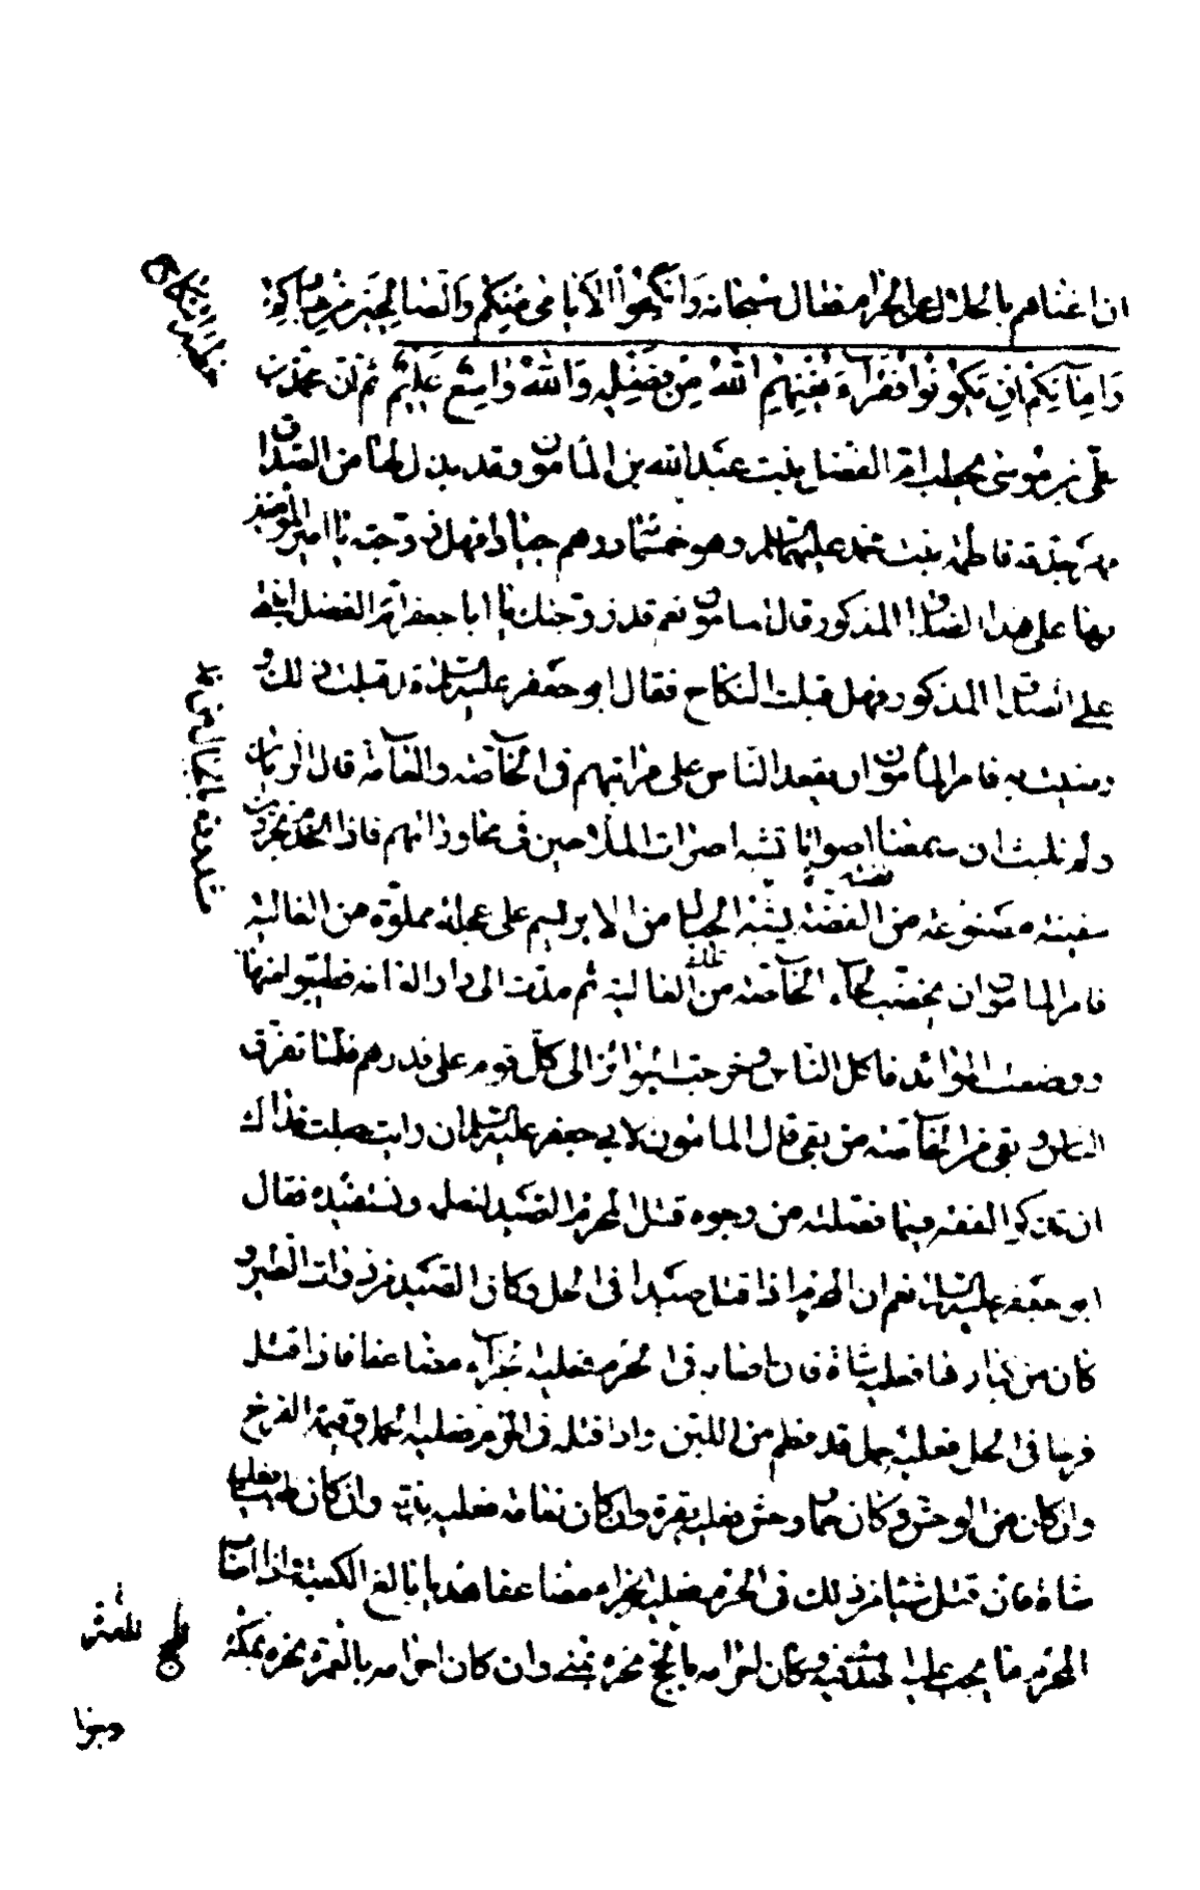 ان اغناهم بالحلال عن الحرام فقال سبحانه وَاَنْكِحُوا الْاَيَامى مِنْكُمْ وَالصّالِحينَ مِنْ عِبادِكُمْ
وَاِمآئِكُمْ اِنْ يَكُونُوا فُقَرآءَ يُغْنِهِمُ اللّهُ مِنْ فَضْلِهِ وَاللّهُ واسِعٌ عَليمٌ ثم ان محمد بن
علي بن موسى يخطب ام الفضل بنت عبد الله بن المأمون وقد بذل لها من الصداق
مهر جدته فاطمة بنت محمد عليهما السلام وهو خمسمائة درهم جيادا فهل زوجته يا امير المؤمنين
بها على هذا الصداق المذكور قال المأمون نعم قد زوجتك يا ابا جعفر ام الفضل ابنتي
على الصداق المذكور فهل قبلت النكاح فقال ابو جعفر عليه السلام قد قبلت ذلك و
رضيت به فامر المأمون ان يقعد الناس على مراتبهم في الخاصة والعامة قال الريان
ولم نلبث ان سمعنا اصواتا تشبه اصوات الملاحين في محاوراتهم فاذا الخدم يجرون
سفينة مصنوعة من الفضة يشبه الحبال من الابريسم على عجلة مملوة من الغالية
فامر المأمون ان يخضب لحاء الخاصة من تلك الغالية ثم مدت الى دار العامة فطيبوا منها
ووضعت الموائد فاكل الناس وخرجت الجوائز الى كل قوم على قدرهم فلما تفرق
الناس وبقي من الخاصة من بقي قال المأمون لابي جعفر عليه السلام ان رايت جعلت فداك
ان تذكر الفقه فيما فصلته من وجوه قتل المحرم الصيد لنعلمه ونستفيده فقال
ابو جعفر عليه السلام نعم ان المحرم اذا قتل صيدا في الحل وكان الصيد من ذوات الطير و
كان من كبارها فعليه شاة فان اصابه في الحرم فعليه الجزآء مضاعفا فاذا قتل
فرخا في الحل فعليه حمل قد فطم من اللبن واذا قتله في الحرم فعليه الحمل وقيمة الفرخ
وان كان من الوحش وكان حمار وحش فعليه بقرة وان كان نعامة فعليه بدنة وان كان ظبيا فعليه
شاة فان قتل شيئا من ذلك في الحرم فعليه الجزاء مضاعفا هديا بالغ الكعبة واذا اصاب
المحرم ما يجب عليه الهدي فيه وكان احرامه بالحج نحره بمنى وان كان احرامه بالعمرة نحره بمكة